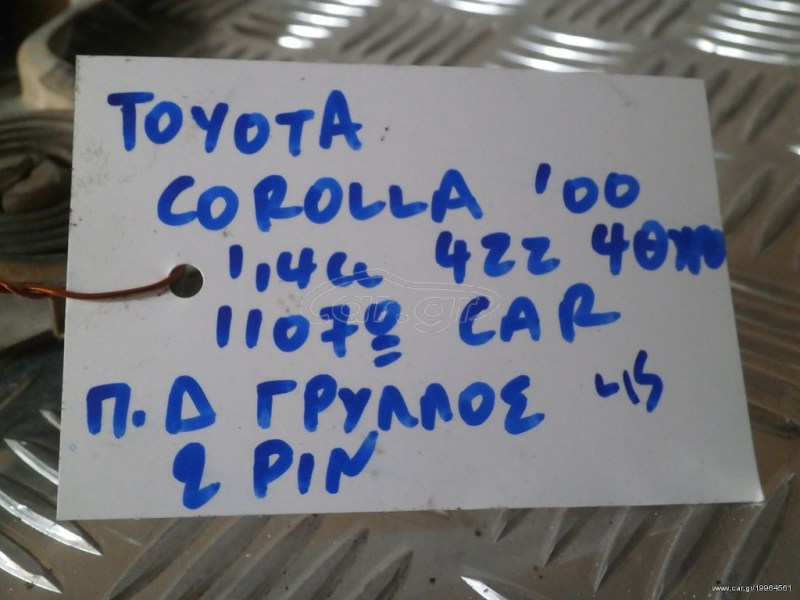 TOYOTA
COROLLA '00
1,4cc 4ZZ 4θ
11070 CAR
Π.Δ ΓΡΥΛΛΟΣ
2 PIN
car.gr
www.car.gr/19964561